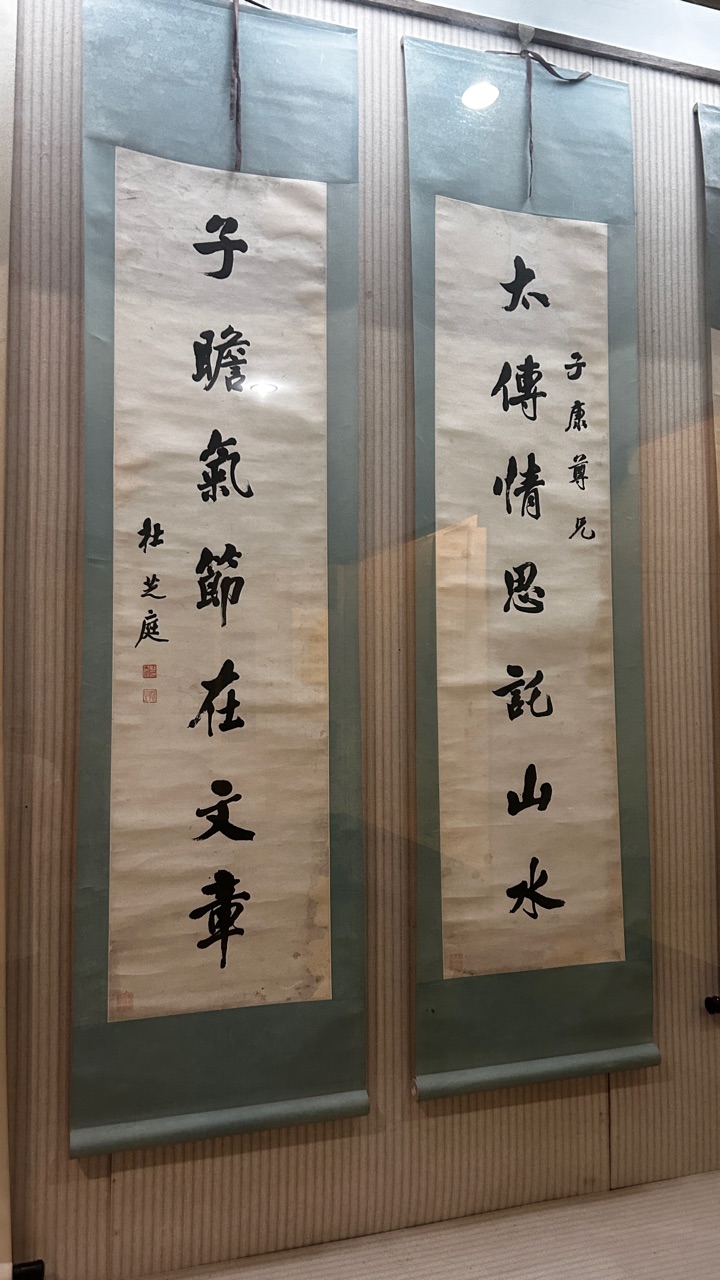 子康尊兄
太傳情思託山水
子瞻氣節在文章
杜芝庭